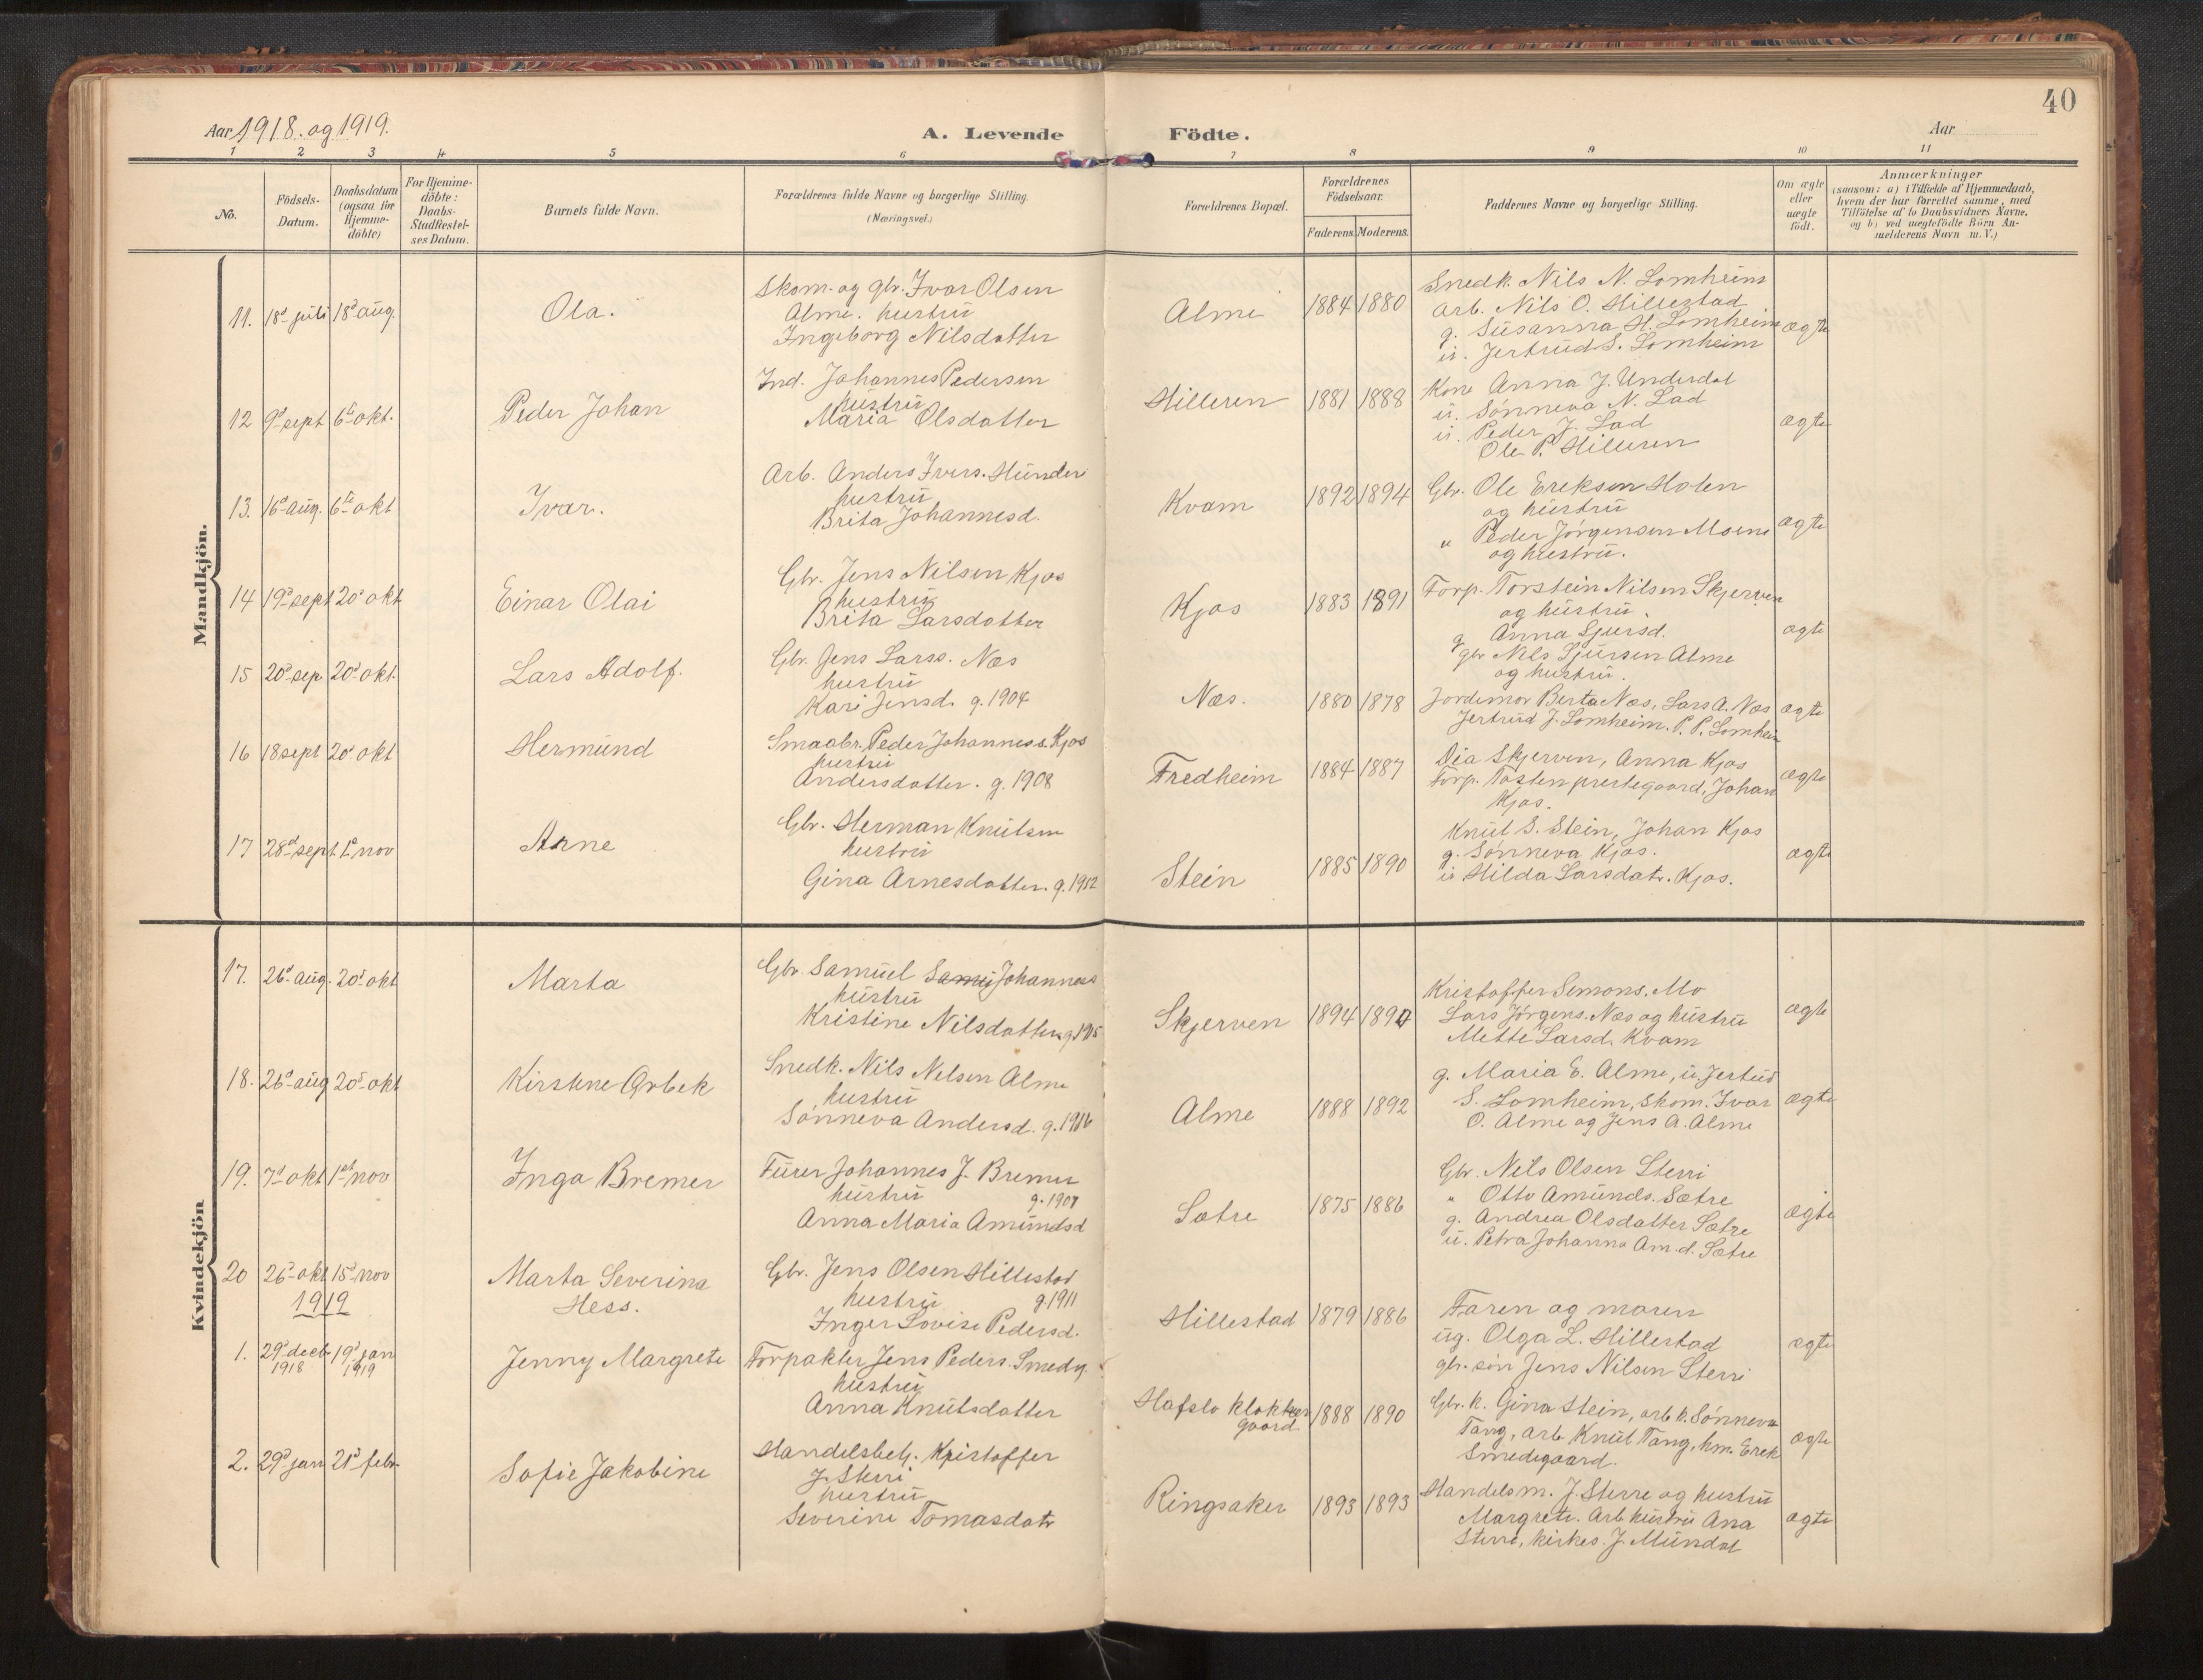 40
Aar 1918. og 1919.
A. Levende Födte.
Aar
1 2 3 4 5 6 7 8 9 10 11
No.
Födsels-Datum.
Daabsdatum (ogsaa for Hjemme-döbte)
For Hjemme-döbte: Daabs-Stadfestel-ses Datum.
Barnets fulde Navn.
Forældrenes fulde Navne og borgerlige Stilling. (Næringsvei.)
Forældrenes Bopæl.
Forældrenes Födselsaar.
Faderens. Moderens.
Faddernes Navne og borgerlige Stilling.
Om ægte eller uægte födt.
Anmærkninger
(saasom: a) i Tilfælde af Hjemmedaab,
hvem der har forrettet samme, med
Tilföielse af to Daabsvidners Navne.
og b) ved uægtefödte Börn An-
melderens Navn m. V.)
Mandkjön.
11. 18d juli 18d aug. Ola.
Skom. og gbr. Ivar Olsen
Alme. hustru
Ingeborg Nilsdatter
Almi 1884 1880
Snedk. Nils N. Lomheim
Arb. Nils O. Hillestad
g. Susanna H. Lomheim
u. Jertrud S. Lomheim
ægte
12 9d sept 6te okt. Peder Johan
Ind. Johannes Pedersen
hustru
Maria Olsdatter
Hilleren 1881 1888
Kone Anna J. Underdal
u. Sönneva N. Lad
u. Peder J. Lad
Ole P. Hilleren
ægte
13. 16d aug. 6te okt Ivar.
Arb. Anders Ivers. Hunder
hustru
Brita Johannesd.
Kvam 1892 1894
Gbr. Ole Ereksen Holen
og hustru
" Peder Jörgensen Moene
og hustru.
ægte
14 19d sept 20d okt Einar Olai
Gbr. Jens Nilsen Kjos
hustru
Brita Larsdatter
Kjos 1883 1891
Forp. Torstein Nilsen Skjerven
og hustru.
g Anna Sjursd.
gbr Nils Sjursen Alme
og hustru.
ægte
15 20d sep 20d okt. Lars Adolf.
Gbr. Jens Larss. Næs
hustru
Kari Jensd. g. 1904
Næs. 1880 1878
Jordemor Berta Næs, Lars A. Næs
Jertrud J. Lomheim. P. P. Lomheim
ægte
16 18 sept 20d okt Hermund
Smaabr. Peder Johanness. Kjos
hustru
Andersdatter. g. 1908
Fredheim 1884 1887
Dia Skjerven, Anna Kjos
Forp. Tosten prestegaard, Johan
Kjos.
ægte
17 28d sept. 1d nov Arne
Gbr. Herman Knutsen
hustru
Gina Arnesdatter. g. 1912
Stein 1885 1890
Knut S. Stein, Johan Kjos
g. Sönneva Kjos.
u Hilda Larsdatr. Kjos.
ægte
Kvindekjön
17. 26d aug. 20d okt Marta
Gbr. Samuel Samu Johanness
hustru
Kristine Nilsdatter g 1915
Skjerven 1894 1894
Kristoffer Simons. Mo
Lars Jörgens. Næs og hustru
Mette Larsd. Kvam
ægte
18. 26d aug 20d okt Kirstine Ørbek
Snedk. Nils Nelsen Alme
hustru
Sönneva Andersd. g. 1916
Alme 1888 1892
g. Maria E. Alme, u. Jertrud
S. Lomheim, skom. Ivar
O. Alme og Jens A. Alme
ægte
19. 7d okt 1ste nov Inga Bremer
Furer Johannes J. Bremer
hustru g. 1907
Anna Maria Amundsd
Sætre 1875 1886
Gbr. Nils Olsen Sterri
" Otto Amunds. Sætre
g. Andrea Olsdatter Sætre
u. Petra Johanna Am.d. Sætre
ægte
20 26d okt 15d nov Marta Severina
Hess.
Gbr. Jens Olsen Hillestad
hustru g 1911
Inger Lovise Pedersd.
Hillestad 1879 1886
Faren og moren
ug. Olga L. Hillestad
gbr. sön Jens Nilsen Sterri
ægte
1919
1. 29d decb 1918 19d jan 1919 Jenny Margrete
Forpakter Jens Peders. Smedg.
hustru
Anna Knutsdatter
Hafslo klokker
gaard 1888 1890
Gbr. k. Gina Stein, arb k. Sönneva
Tang, arb Knut Tang, hm. Erek
Smedegaard.
ægte
2. 29d jan 21d febr. Sofie Jakobine
Handelsbetj. Kristoffer
J. Sterri
hustru
Severine Tomasdatr
Ringsaker 1893 1893
Handelsm. J. Sterre og hustru
Margrete. Arb hustru Ana
Sterre, kirkes. J. Mundal
ægte